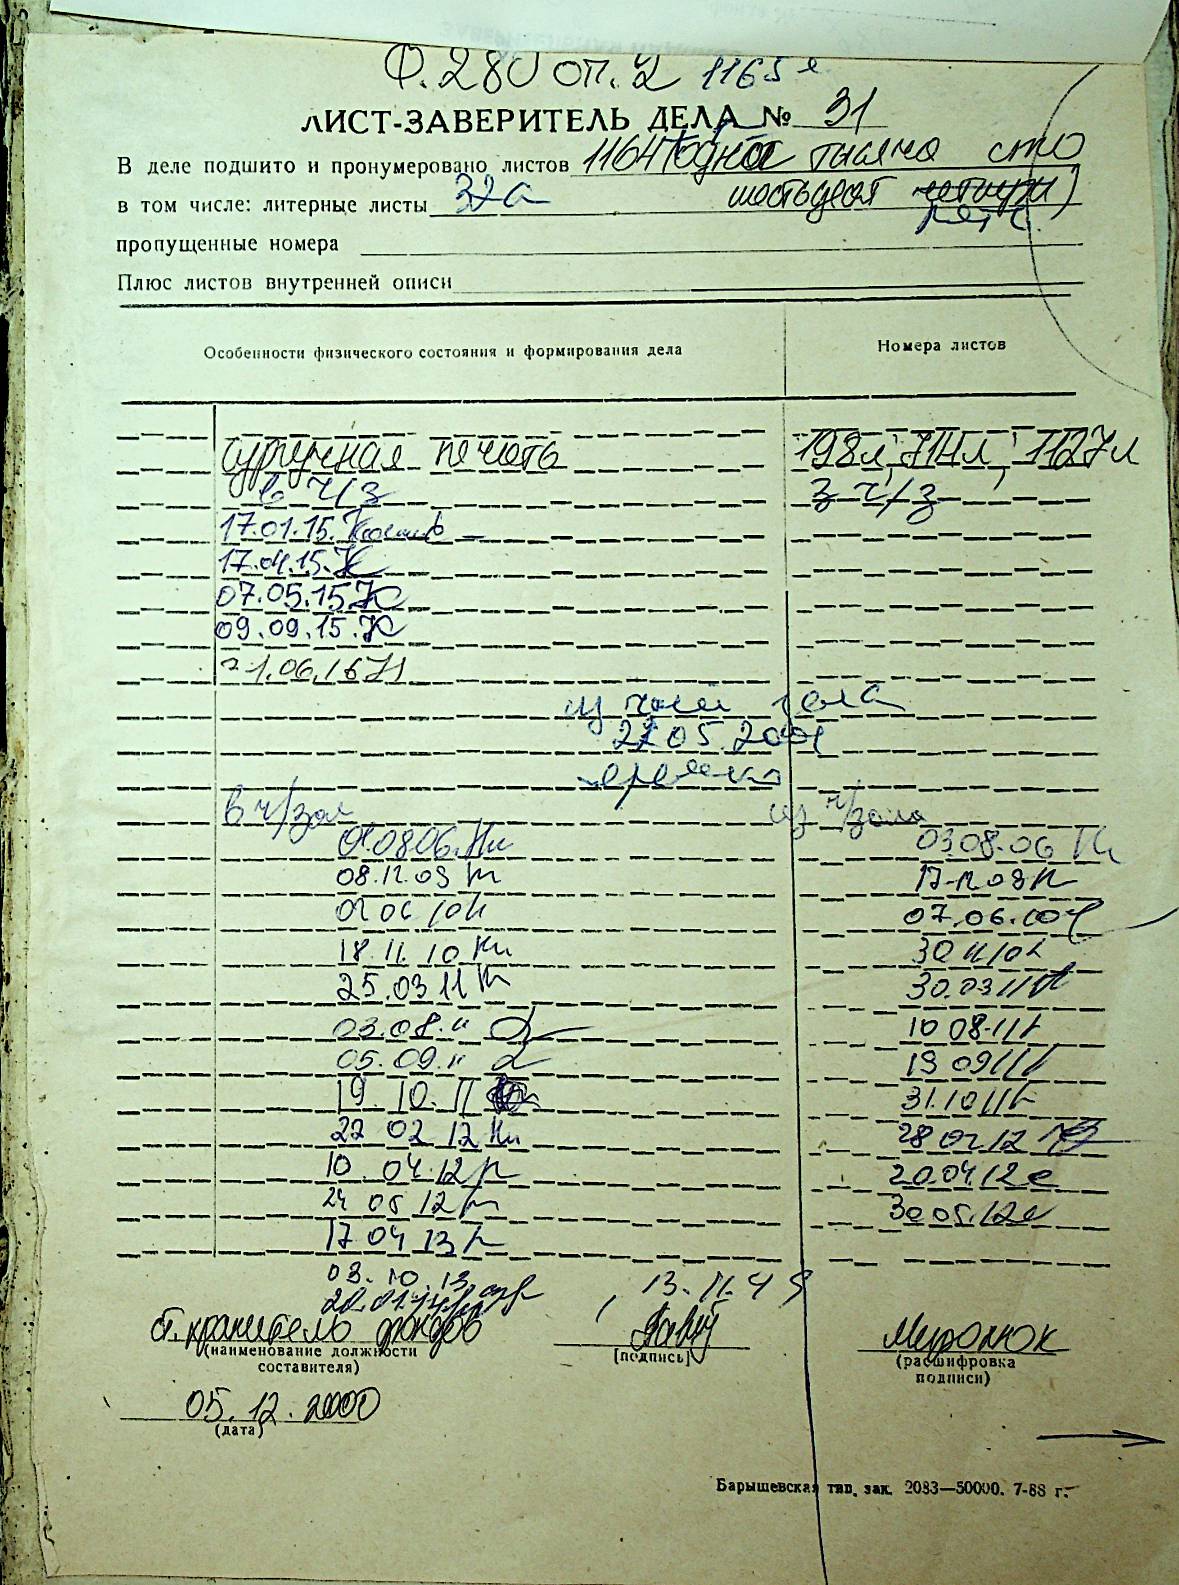 Ф. 280 оп. 2 1165 л
ЛИСТ-ЗАВЕРИТЕЛЬ ДЕЛА № 31
В деле подшито и пронумеровано листов 1164 (одна тысяча сто
шестьдесят четыре)
в том числе: литерные листы 32а
пять
пропущенные номера
Плюс листов внутренней описи
Особенности физического состояния и формирования дела
Номера листов
сургучная печать 198л, 714л, 1127л
в ч/з з ч/з
17.01.15.
17.04.15. К
07.05.15 К
09.09.15. К
21.06.16
из чит зала
22.05.2001
в ч/зал из ч/зала
01.08.06. 03.08.06
08.12.09 17.12.09
02 06 10 07.06.10
18.11.10 30 11 10
25.03 11 30.03 11
03.08.11 10 08.11
05.09.11 19 09 11
19.10.11 31.10 11
22 02 12 28 02 12
10 04.12 20.04.12
24 05 12 30 05.12
17 04 13
03.10.13.
13.11.45
ст. хранитель фондов Миронюк
(наименование должности
составителя)
(подпись)
(расшифровка
подписи)
05.12.2000
(дата)
Барышевская тип. зак. 2083—50000. 7-88 г.